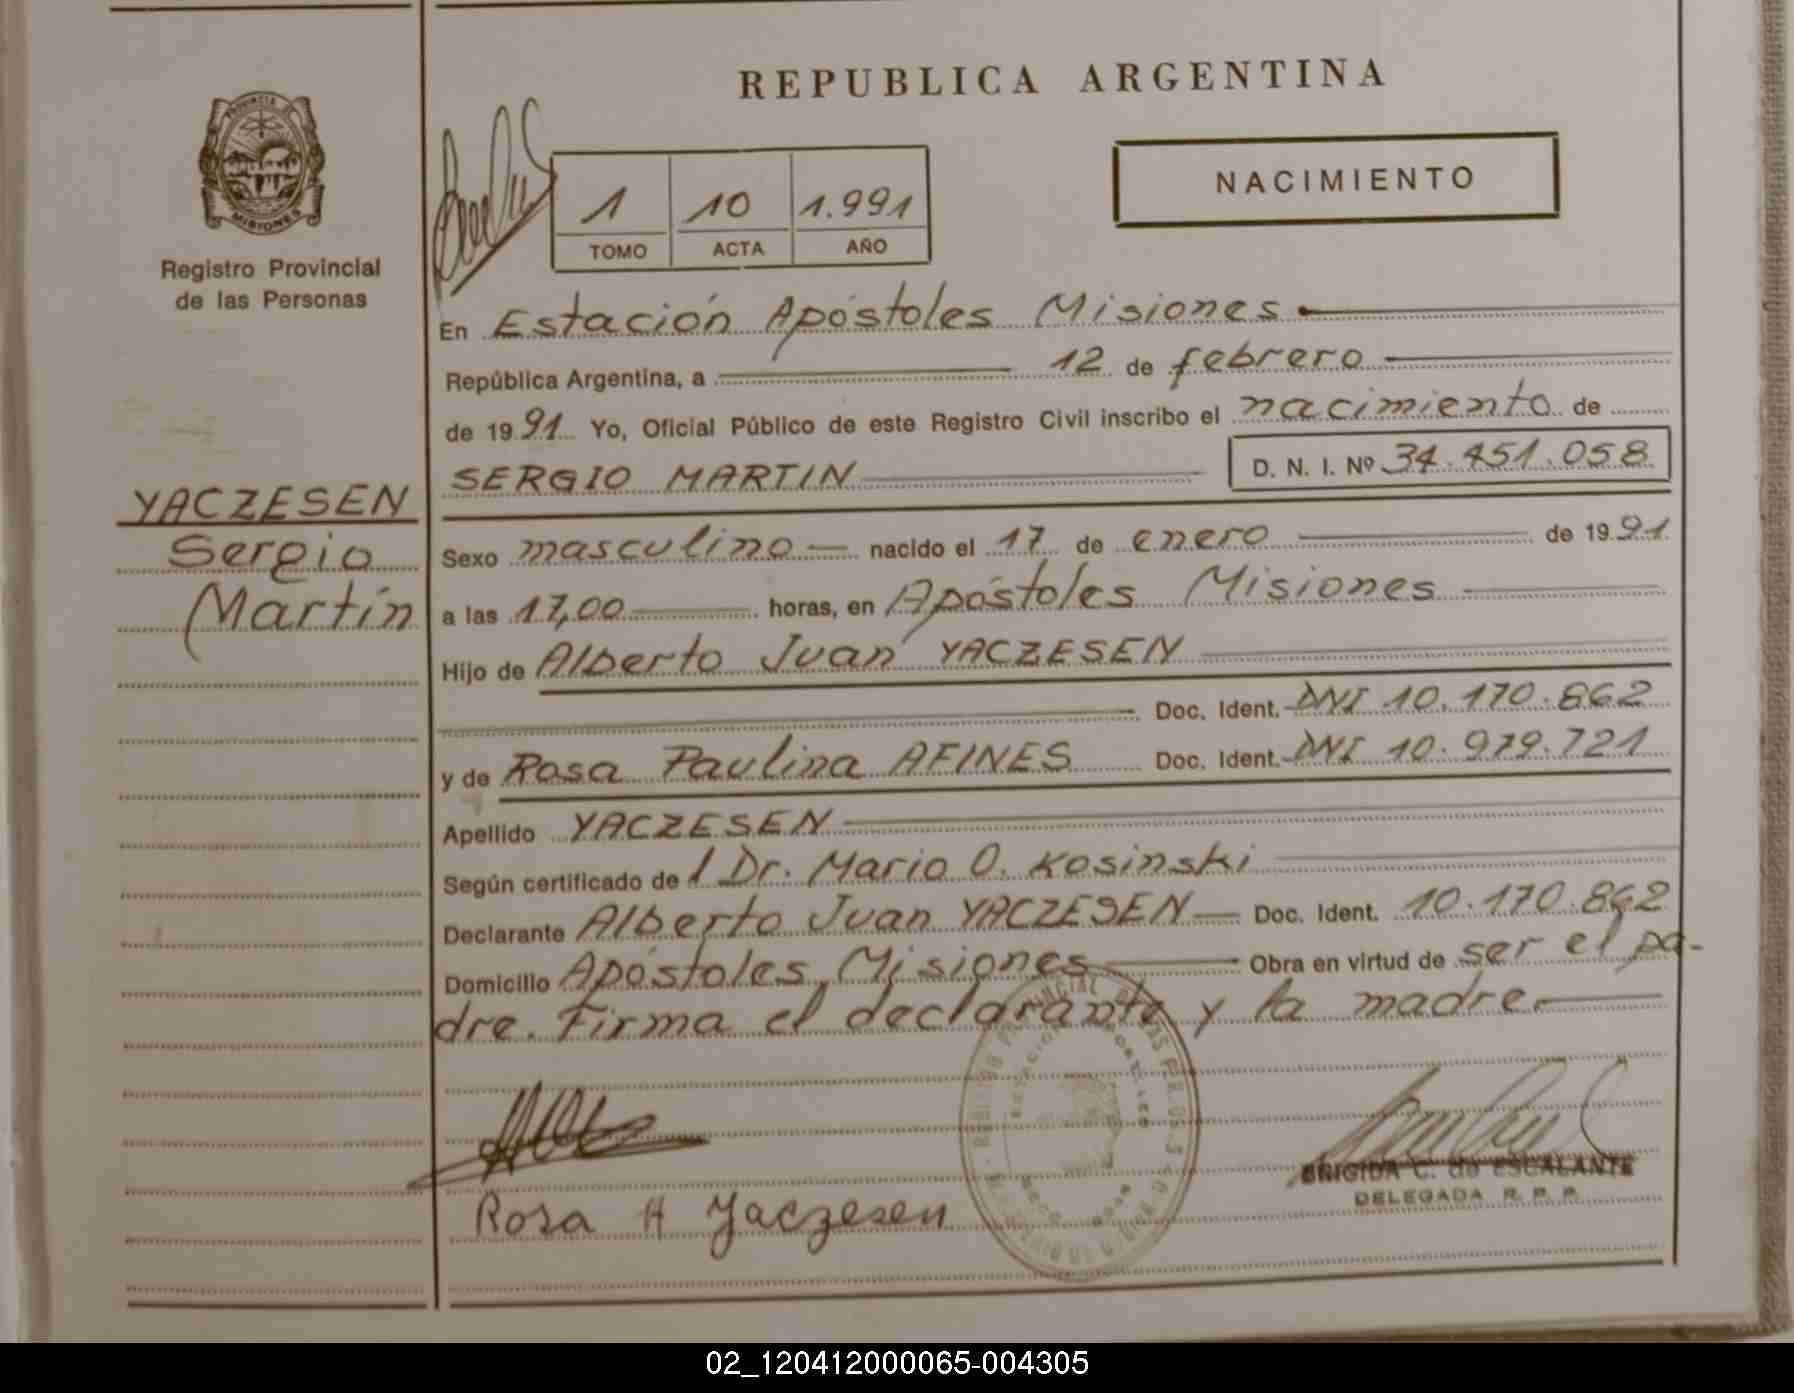 REPUBLICA ARGENTINA
PROVINCIA DE
MISIONES
Registro Provincial
de las Personas
1 10 1.991
TOMO ACTA AÑO
NACIMIENTO
En Estación Apóstoles Misiones
República Argentina, a 12 de febrero
de 1991 Yo, Oficial Público de este Registro Civil inscribo el nacimiento de
SERGIO MARTIN D. N. I. Nº 34.451.058
YACZESEN
Sergio
Martín
Sexo masculino nacido el 17 de enero de 1991
a las 17,00 horas, en Apóstoles Misiones
Hijo de Alberto Juan YACZESEN
Doc. Ident. DNI 10.170.862
y de Rosa Paulina AFINES Doc. Ident. DNI 10.979.721
Apellido YACZESEN
Según certificado del Dr. Mario O. Kosinski
Declarante Alberto Juan YACZESEN Doc. Ident. 10.170.862
Domicilio Apóstoles Misiones Obra en virtud de ser el pa-
dre. Firma el declarante y la madre.
Rosa A Yaczesen
BRIGIDA C. de ESCALANTE
DELEGADA R. P. P.
02_120412000065-004305